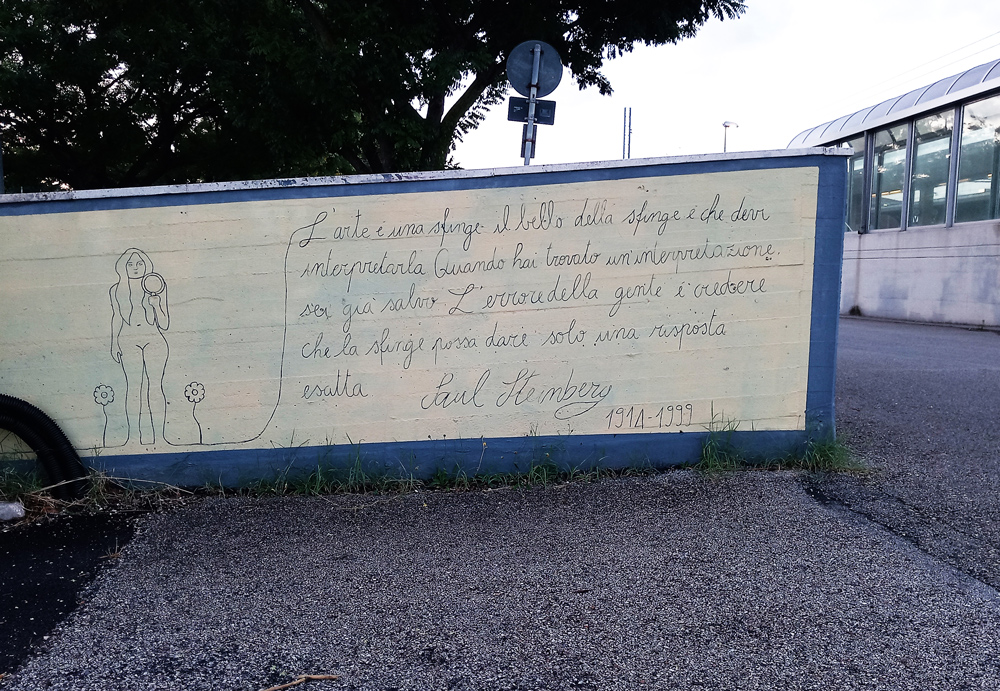 L'arte è una sfinge il bello della sfinge è che devi
interpretarla Quando hai trovato un'interpretazione.
sei già salvo. L'errore della gente è credere
che la sfinge possa dare solo una risposta
esatta Saul Steinberg
1914-1999